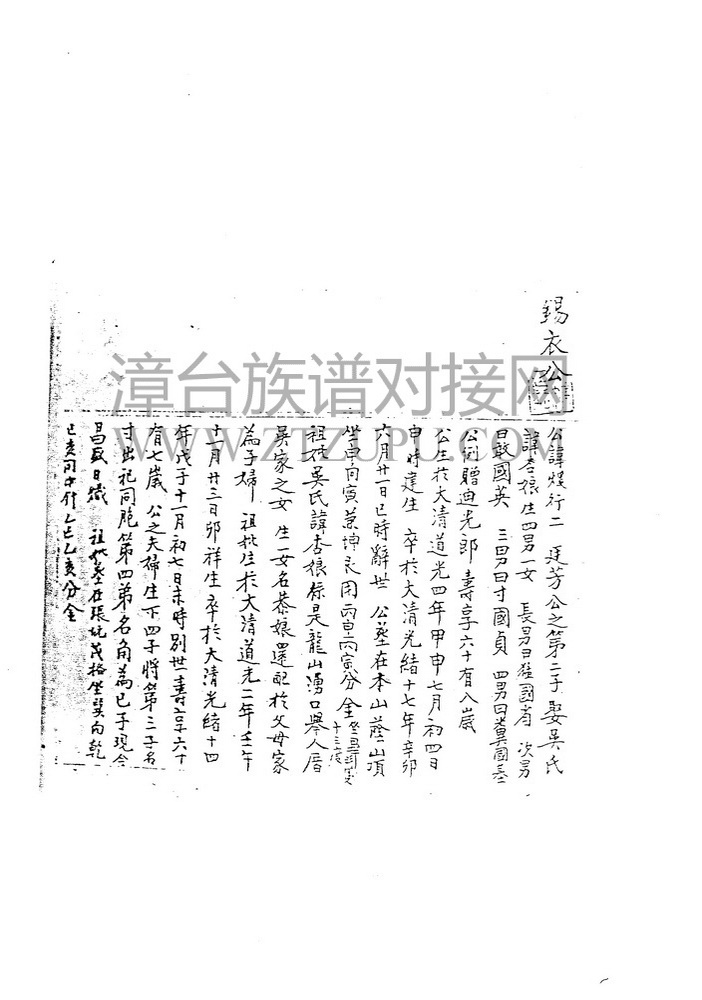 錫衣公
公諱煖行二 廷芳公之第二子 娶吳氏
諱杏娘生四男一女 長男曰 國香 次男
曰敢國英 三男曰寸國貞 四男曰糞國基
公例贈迪光郎 壽享六十有八歲
公生於大清道光四年甲申七月初四日
申時建生 卒於大清光緒十七年辛卯
六月廿一日巳時辭世 公塋在本山 山項
坐申向寅兼坤艮用丙申丙寅分金
祖妣吳氏諱杏娘係是龍山湧口舉人厝
吳家之女 生一女名恭娘還配於父母家
為子婦 祖妣生於大清道光二年壬午
十一月廿三日卯祥生卒於大清光緒十四
年戊子十一月初七日未時別世 壽享六十
有七歲 公之夫婦生下四子將第三子名
寸出祀同胞第四弟名角為己子現今
昌盛日熾 祖妣塋在張坑茂格坐巽向乾
巳亥同中針 乙巳乙亥分金
漳台族谱对接网
WWW.ZTZUPU.COM